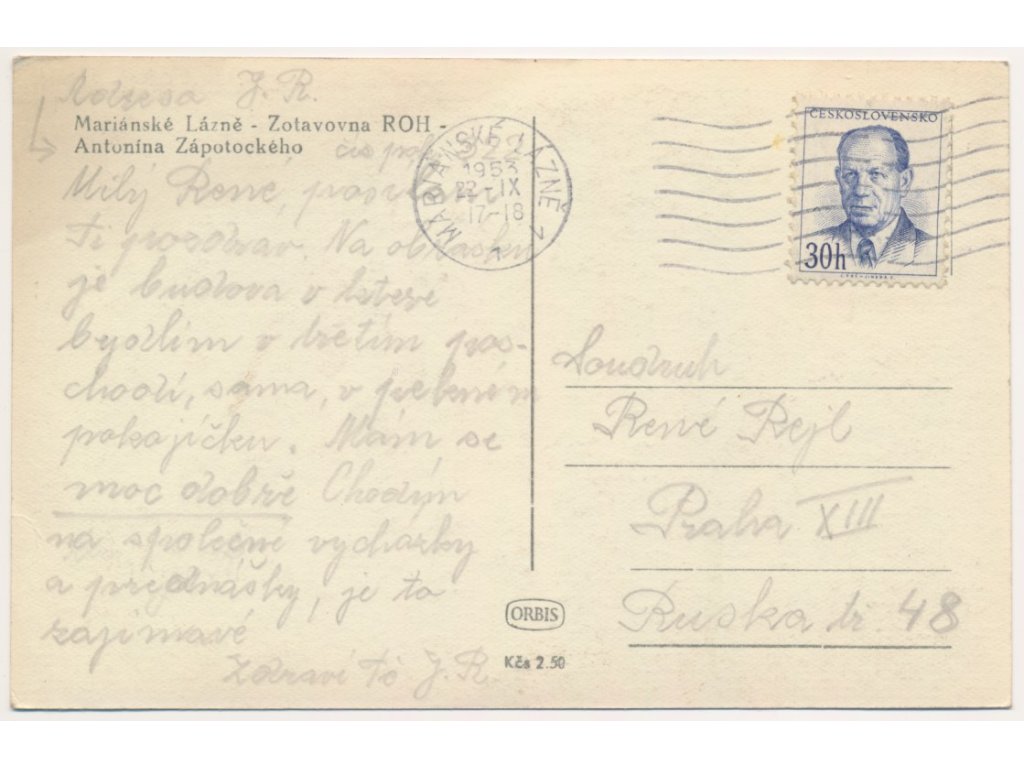 Adresa J. R.
Mariánské Lázně - Zotavovna ROH -
Antonína Zápotockého
čís
Milý René,
Ti pozdrav. Na obrázku
je budova v které
bydlím v třetím pos-
chodí, sama, v pěkném
pokojíčku. Mám se
moc dobře Chodím
na společné vycházky
a přednášky, je to
zajímavé
Zdraví Tě J. R.
MARIÁNSKÉ LÁZNĚ 1
1953
22-IX
17-18
ČESKOSLOVENSKO
30h
Soudruh
René Rejl
Praha XIII
Ruská tř. 48
ORBIS
Kčs 2.50